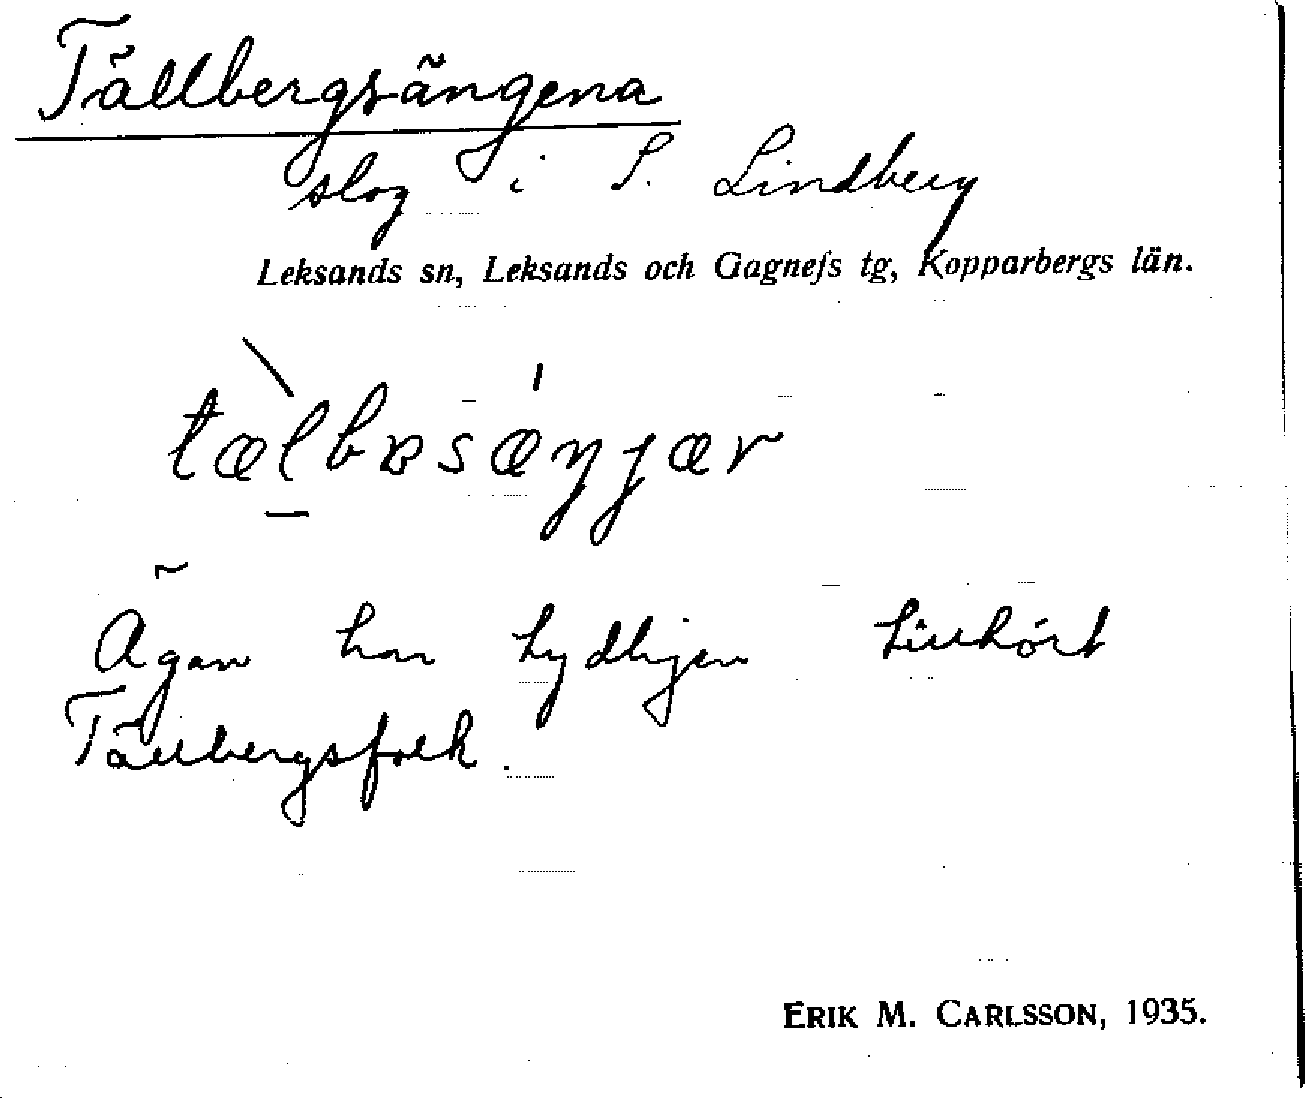 Tällbergsängena
slog i S. Lindberg
Leksands sn, Leksands och Gagnefs tg, Kopparbergs län.
tælbɐsæŋjær
Ägan har tydligen tillhört
Tällbergsfolk.
ERIK M. CARLSSON, 1935.